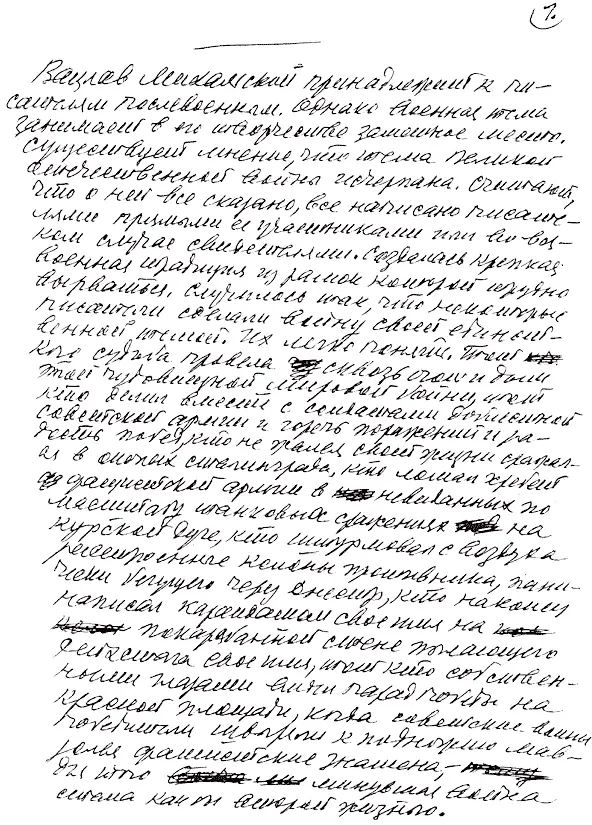 1.
Вацлав Михальский принадлежит к пи-
сателям послевоенным. Однако военная тема
занимает в его творчестве заметное место.
Существует мнение, что тема Великой
Отечественной войны исчерпана. Считают,
что о ней все сказано, все написано писате-
лями прямыми ее участниками или во вся-
ком случае свидетелями. Создалась крепкая
военная традиция из рамок которой трудно
вырваться. Случилось так, что некоторые
писатели сделали войну своей единст-
венной темой. Их легко понять. Тот
кого судьба провела сквозь огонь и дым
той чудовищной мировой войны, тот
кто делил вместе с солдатами доблестной
советской армии и горечь поражений и ра-
дость побед, кто не жалея своей жизни сражал-
ся в окопах Сталинграда, кто ломал хребет
фашистской армии в невиданных по
масштабу танковых сражениях на
Курской дуге, кто штурмовал с воздуха
колонны противника, пани-
чески бегущего через Днепр, кто наконец
написал карандашом свое имя на
поцарапанной стене пылающего
Рейхстага свое имя, тот кто собствен-
ными глазами видел парад победы на
Красной площади, когда советские воины
победители швыряли к подножию мав-
золея фашистские знамена, –
для того минувшая война
стала как бы второй жизнью.